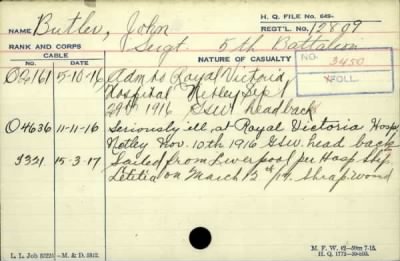 H. Q. FILE No. 649-
NAME Butler, John REGT'L. No. 12809
RANK AND CORPS Sergt. 5th Battalion
CABLE NATURE OF CASUALTY
NO. DATE NO. 3450
FOLL.
O2161 5-10-16 Adm. to Royal Victoria
Hospital Netley Sept
29th 1916 GSW head back
O4636 11-11-16 Seriously ill, at Royal Victoria Hosp.
Netley Nov. 10th 1916 GSW. head back
3321 15-3-17 Sailed from Liverpool per Hosp Ship
Letitia on March 12th/17. Shrap. wound
L. L. Job —M. & D. 5812. M. F. W. 42—50m 7-16.
H. Q. 1772-39-908.